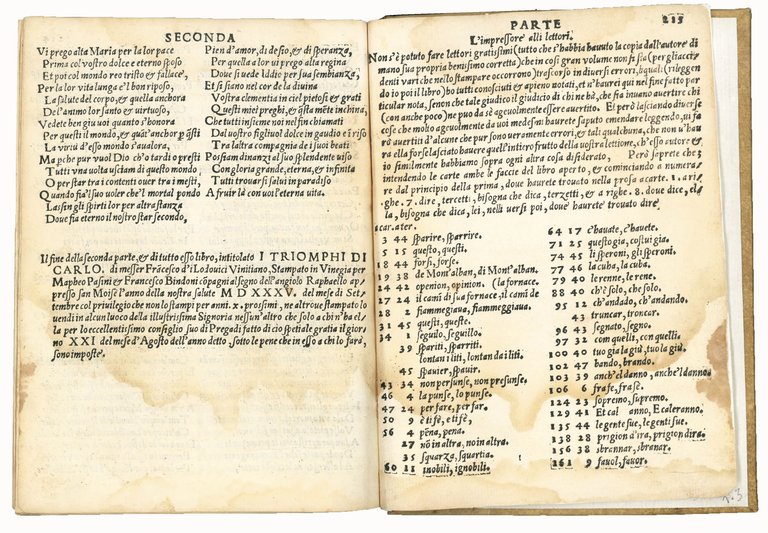 SECONDA
Vi prego alta Maria per la lor pace
Prima col vostro dolce e eterno sposo
Et poi col mondo reo tristo & fallace,
Per la lor vita lunga e'l bon riposo,
La salute del corpo, & quella anchora
De l'animo lor santo & virtuoso,
Vedete ben giu voi quanto s'honora
Per questi il mondo, & quāt'anchor ꝑ q̄sti
La virtu d'esso mondo s'avalora,
Ma pche pur vuol Dio ch'o tardi o presti
Tutti vna volta usciam di questo mondo
O per star tra i contenti ouer tra i mesti,
Quando fia'l suo voler che'l mortal pondo
Lassin gli spirti lor per altra stanza
Doue fia eterno il nostro star secondo,
Pien d'amor, di desio, & di speranza,
Per quella a lor vi prego alta regina
Doue si vede Iddio per sua sembianza,
Et si fiano nel cor de la diuina
Vostra clementia in ciel pietosi & grati
Questi miei preghi, & q̄sta mēte inchina,
Che tutti insieme noi nel fin chiamati
Dal uostro figliuol dolce in gaudio e i riso
Tra l'altra compagnia de i suoi beati
Possiam dinanzi al suo splendente uiso
Con gloria grande, eterna, & infinita
Tutti trouarsi su in paradiso
A fruir là con uoi l'eterna uita.
Il fine della seconda parte, & di tutto esso libro, intitolato I TRIOMPHI DI
CARLO. di messer Frācesco d'i Lodouici Vinitiano, Stampato in Vinegia per
Mapheo Pasini & Francesco Bindoni cōpagni al segno dell'angiolo Raphaello ap/
presso san Moise l'anno della nostra salute M D XXXV. del mese di Set/
tembre col priuilegio che non lo stampi per anni .x. prossimi, ne altroue stampato lo
uendi in alcun luoco della illustrissima Signoria nessun'altro che solo a chi n'ha el/
la per lo eccellentissimo conseglio suo di Pregadi fatto di cio spetiale gratia il gior/
no XXI del mese d'Agosto dell'anno detto, sotto le pene che in esso a chi lo fara,
sono imposte.
PARTE
215
L'impressore alli lettori.
Non s'è potuto fare lettori gratissimi (tutto che s'habbia hauuto la copia dall'autore di
mano sua propria benissimo corretta) che in cosi gran volume non si sia (per gli acci/
denti vari che nello stampare occorrono) trascorso in diuersi errori, li quali (rileggen
do io poi il libro) ho tutti conosciuti & apieno notati, et n'haurei qui nel fine fatto par
ticular nota, se non che tale giudico il giudicio di chi ne hà, che sia inuano auertire chi
(con anche poco) ne puo da sè ageuolmente essere auertito. Et però lasciando diuerse
cose che molto ageuolmente da voi medesmi haurete saputo emendare leggendo, ui fa
rò auertiti d'alcune che pur sono ueramente errori, & tali qualchuna, che non u'hau/
ra ella forse lasciato hauere quell'intiero frutto della uostra lettione, ch'esso autore &
io similmente habbiamo sopra ogni altra cosa disiderato, Però saprete che
intendendo le carte ambe le faccie del libro aperto, & cominciando a numera/
re dal principio della prima, doue haurete trouato nella prosa a carte. 1. a ri/
ghe. 7. dire, tercetti, bisogna che dica, terzetti, & a righe. 8. doue dice, el/
la, bisogna che dica, lei, nelli uersi poi, doue haurete trouato dire
a car. a ter.
3 44 sparire, sparire.
5 15 questo, questi.
18 44 forsi, forse.
19 38 de Mont'alban, di Mont'alban.
24 42 openion, opinion. (la fornace.
27 24 il cami di sua fornace, il camī de
28 2 fiammegiaua, fiammeggiaua.
31 45 questi, queste.
34 1 seguilo, seguillo.
39 spariti, sparriti.
lontan i liti, lontan da i liti.
45 spauier, spauir.
43 34 non perunse, non presunse.
46 4 la punse, lo punse.
47 24 per fare, per far.
50 9 è ti fè, e ti fè,
56 4 pēna, pena.
27 nō in altra, no in altra.
35 squarza, squartia.
60 11 inobili, ignobili.
64 17 c'hauate, c'hauete.
71 25 questo gia, costui gia.
74 45 li speroni, gli speroni.
77 46 la cuba, la cuba.
79 40 le renne, le renne.
88 40 ch'è solo, che solo.
95 12 ch'andado, ch'andando.
43 truncar, troncar.
96 43 segnato, segno.
97 32 com quelli, con quelli.
100 40 tuo gia la giù, tuo là giù.
102 47 bando, brando.
103 39 anch'el danno, anche'l danno.
106 6 frase, frasè.
124 23 sopremo, supremo.
129 41 Et cal anno, E caleranno.
135 44 le gente sue, le genti sue.
138 28 prigion d'ira, prigion dira.
156 38 sbrannar, sbranar.
161 9 fauol, fauor.